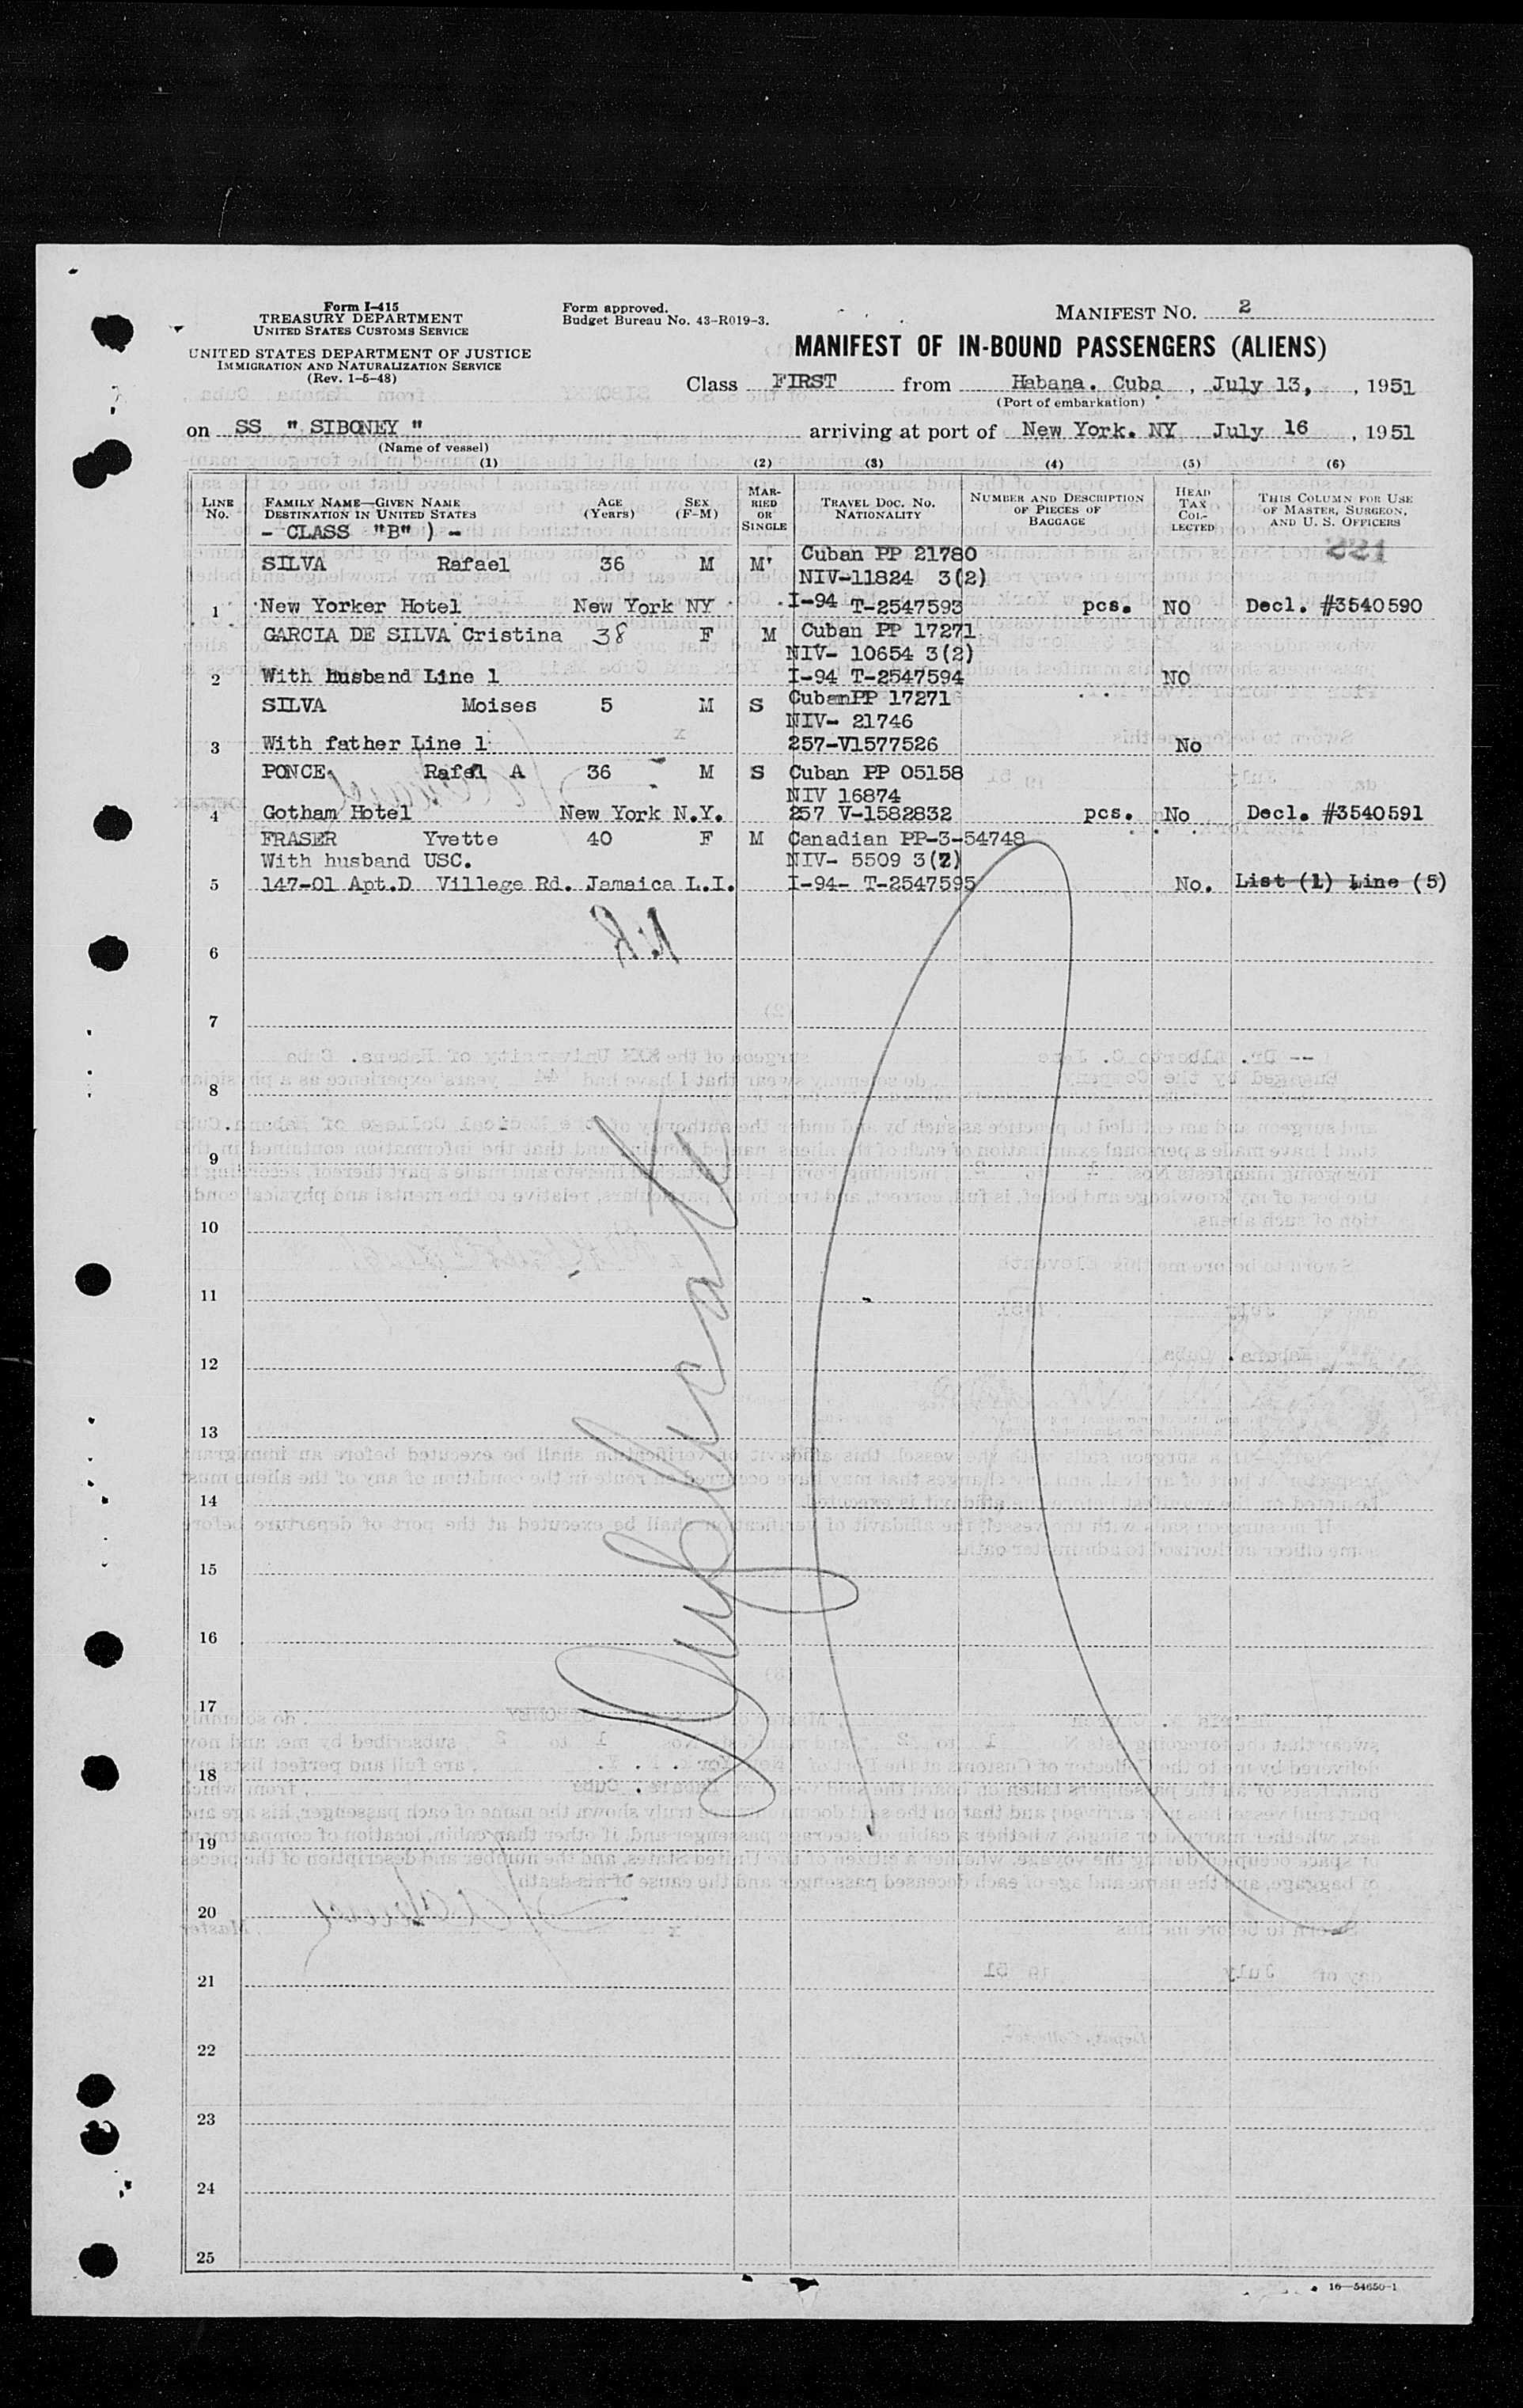 Form I-415
TREASURY DEPARTMENT
UNITED STATES CUSTOMS SERVICE
UNITED STATES DEPARTMENT OF JUSTICE
IMMIGRATION AND NATURALIZATION SERVICE
(Rev. 1-5-48)
Form approved.
Budget Bureau No. 43-R019-3.
MANIFEST NO. 2
MANIFEST OF IN-BOUND PASSENGERS (ALIENS)
Class FIRST from Habana. Cuba, July 13, , 1951
(Port of embarkation)
on SS " SIBONEY " arriving at port of New York. NY July 16, 1951
(Name of vessel)
(1) (2) (3) (4) (5) (6)
LINE No. FAMILY NAME—GIVEN NAME DESTINATION IN UNITED STATES AGE (Years) SEX (F-M) MARRIED OR SINGLE TRAVEL DOC. NO. NATIONALITY NUMBER AND DESCRIPTION OF PIECES OF BAGGAGE HEAD TAX COLLECTED THIS COLUMN FOR USE OF MASTER, SURGEON, AND U. S. OFFICERS
- CLASS "B" ) -
SILVA Rafael 36 M M Cuban PP 21780
NIV-11824 3(2)
1 New Yorker Hotel New York NY I-94 T-2547593 pcs. NO Decl. #3540590
GARCIA DE SILVA Cristina 38 F M Cuban PP 17271
NIV- 10654 3(2)
2 With husband Line 1 I-94 T-2547594 NO
SILVA Moises 5 M S CubanPP 17271
NIV- 21746
3 With father Line 1 257-V1577526 No
PONCE Rafel A 36 M S Cuban PP 05158
NIV 16874
4 Gotham Hotel New York N.Y. 257 V-1582832 pcs. No Decl. #3540591
FRASER Yvette 40 F M Canadian PP-3-54748
With husband USC. NIV- 5509 3(2)
5 147-01 Apt.D Villege Rd. Jamaica L.I. I-94- T-2547595 No. List (1) Line (5)
6
7
8
9
10
11
12
13
14
15
16
17
18
19
20
21
22
23
24
25
Duplicate
16—54650-1